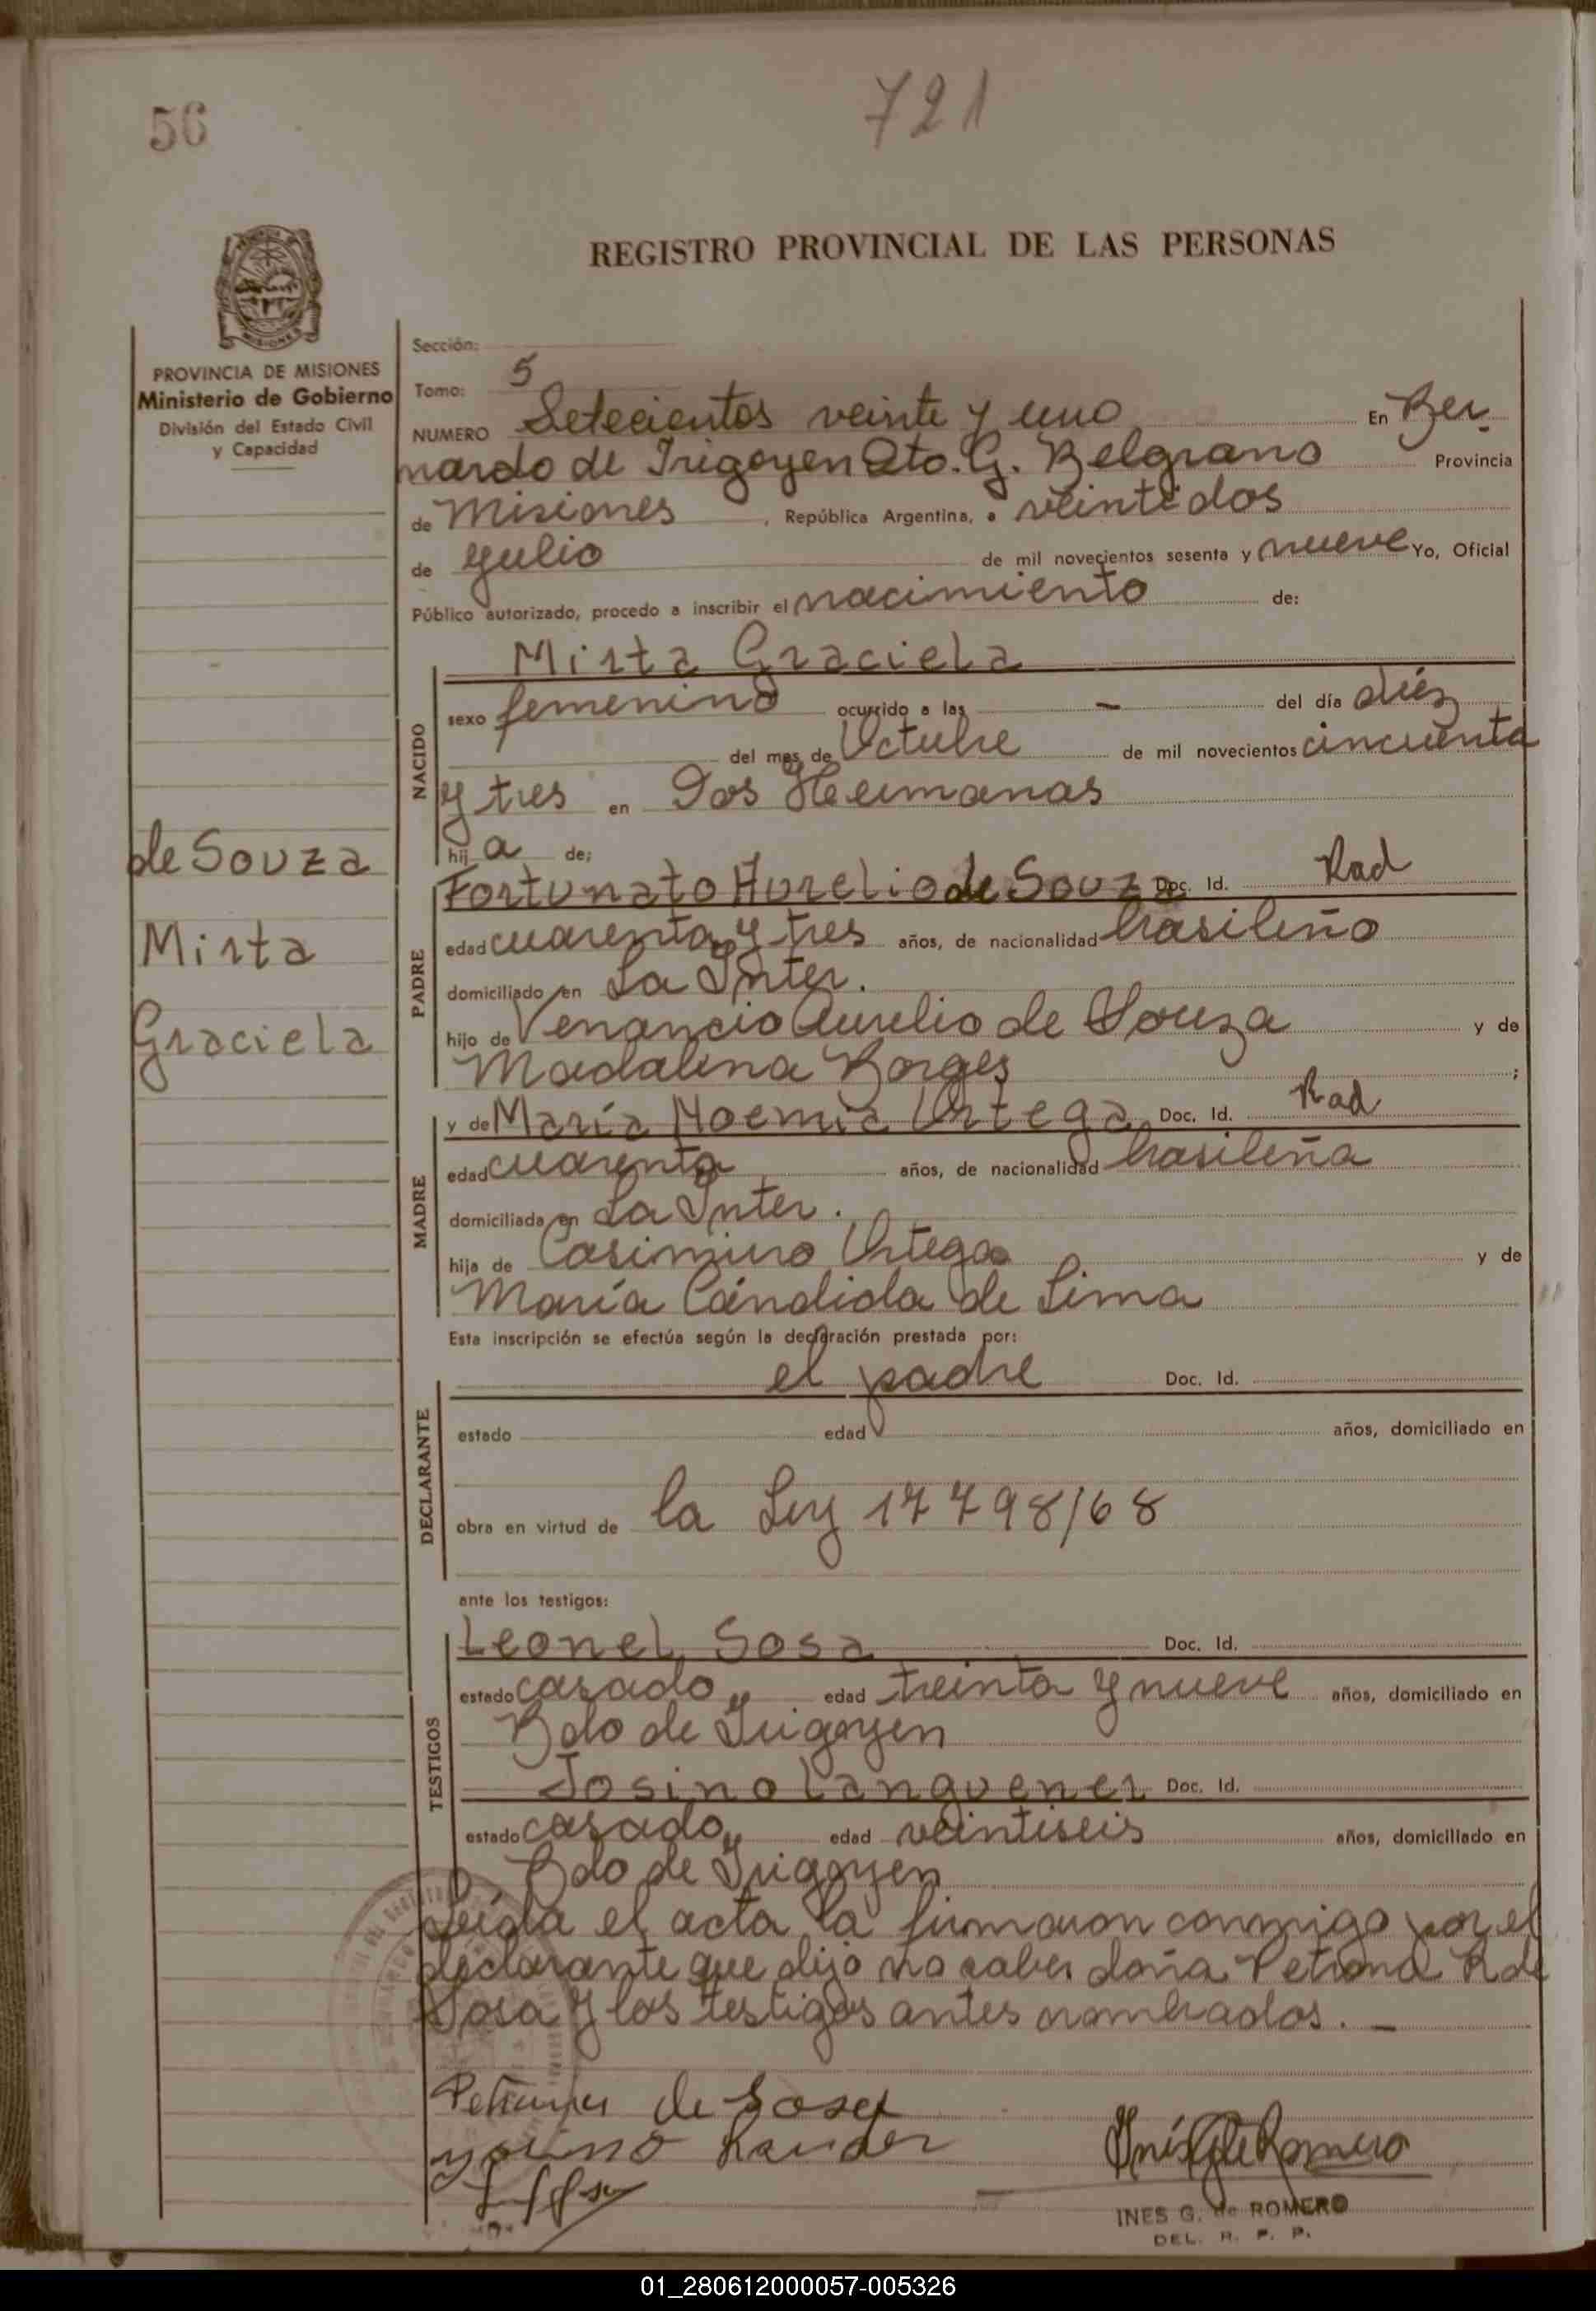 56
721
REGISTRO PROVINCIAL DE LAS PERSONAS
PROVINCIA DE MISIONES
Ministerio de Gobierno
División del Estado Civil
y Capacidad
de Souza
Mirta
Graciela
Sección:
Tomo: 5
NUMERO Setecientos veinte y uno En Ber-
nardo de Irigoyen Dto. G. Belgrano Provincia
de Misiones, República Argentina, a veintidos
de Julio de mil novecientos sesenta y nueve Yo, Oficial
Público autorizado, procedo a inscribir el nacimiento de:
NACIDO
Mirta Graciela
sexo femenino ocurrido a las — del día diéz
del mes de Octubre de mil novecientos cincuenta
y tres en Dos Hermanas
hija de;
PADRE
Fortunato Aurelio de Souza Doc. Id. Rad
edad cuarenta y tres años, de nacionalidad brasileño
domiciliado en La Inter.
hijo de Venancio Aurelio de Souza y de
Madalena Borges ;
MADRE
y de María Noemia Ortega Doc. Id. Rad
edad cuarenta años, de nacionalidad brasileña
domiciliada en La Inter.
hija de Casimiro Ortega y de
María Cándida de Lima
Esta inscripción se efectúa según la declaración prestada por:
DECLARANTE
el padre Doc. Id.
estado edad años, domiciliado en
obra en virtud de la Ley 17798/68
ante los testigos:
TESTIGOS
Leonel Sosa Doc. Id.
estado casado edad treinta y nueve años, domiciliado en
Bdo de Irigoyen
Josino Langvener Doc. Id.
estado casado edad veintiseis años, domiciliado en
Bdo de Irigoyen
Leída el acta la firmaron conmigo por el
declarante que dijo no saber doña Petrona R de
Sosa y los testigos antes nombrados. —
de Sosa
INES G. de ROMERO
DEL. R. P. P.
01_280612000057-005326